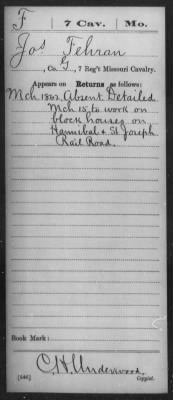 F | 7 Cav. | Mo.
Jos Fehran
, Co. G, 7 Reg't Missouri Cavalry.
Appears on Returns as follows:
Mch 1862 Absent Detailed
Mch 15 to work on
block houses on
Hannibal & St Joseph
Rail Road.
Book Mark:
C.H. Underwood.
(546) Copyist.